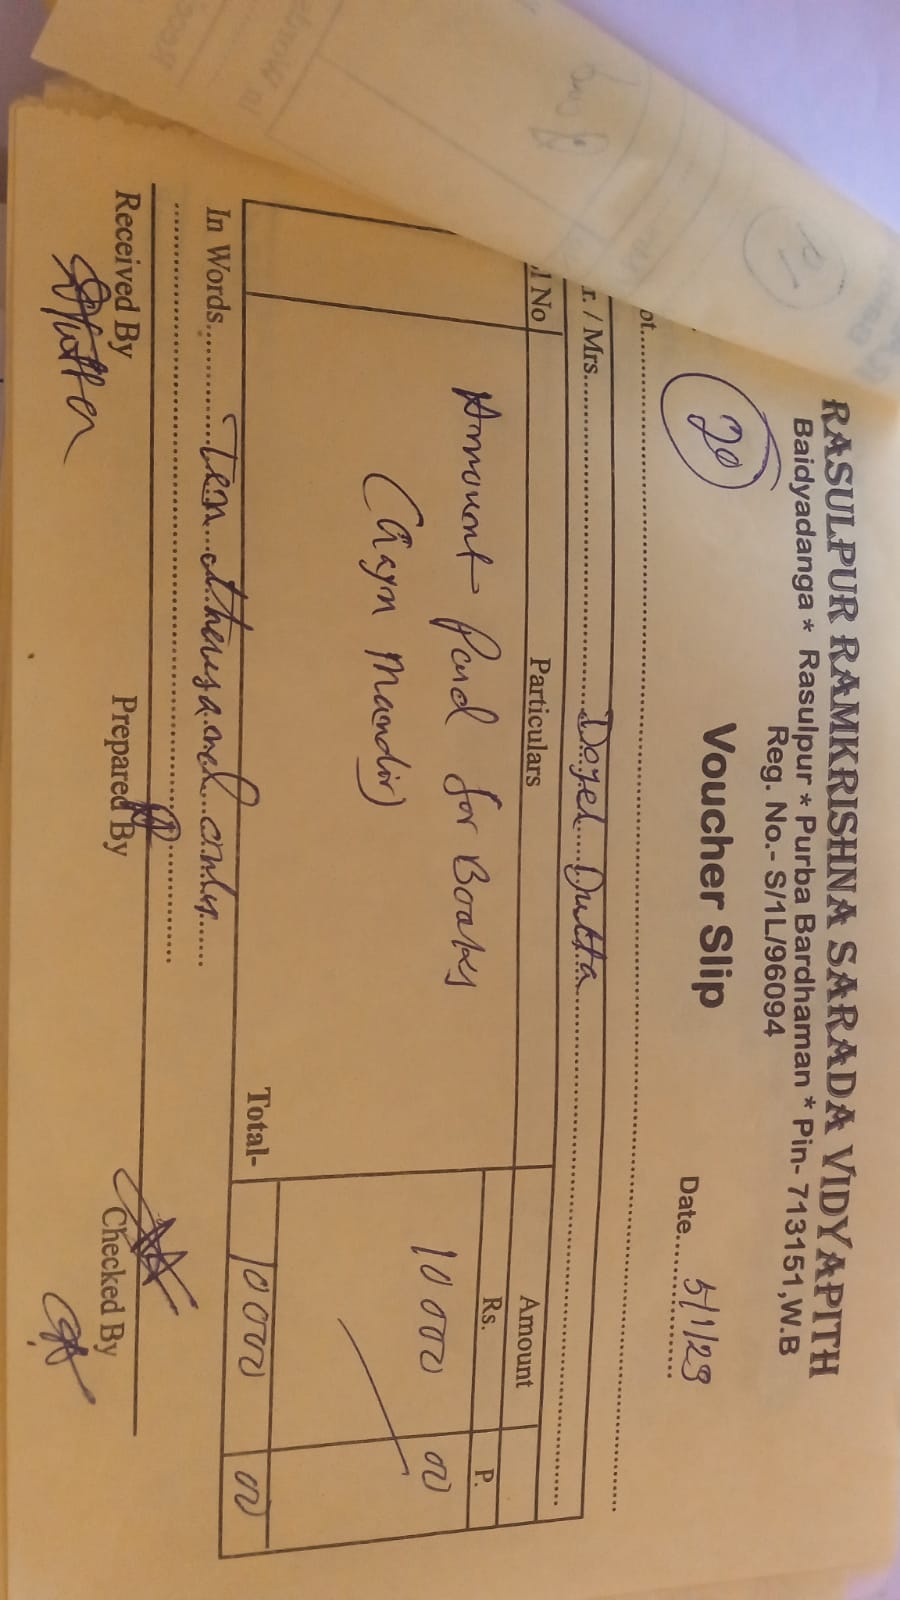 RASULPUR RAMKRISHNA SARADA VIDYAPITH
Baidyadanga * Rasulpur * Purba Bardhaman * Pin- 713151,W.B
Reg. No.- S/1L/96094
20
Voucher Slip
Date 5/1/23
pt.
r. / Mrs. Doyel Dutta
l No Particulars Amount
Rs. P.
Amount Paid for Books 10000 00
(Gayn Mandir)
Total- 10000 00
In Words Ten thousand only
Received By Prepared By Checked By